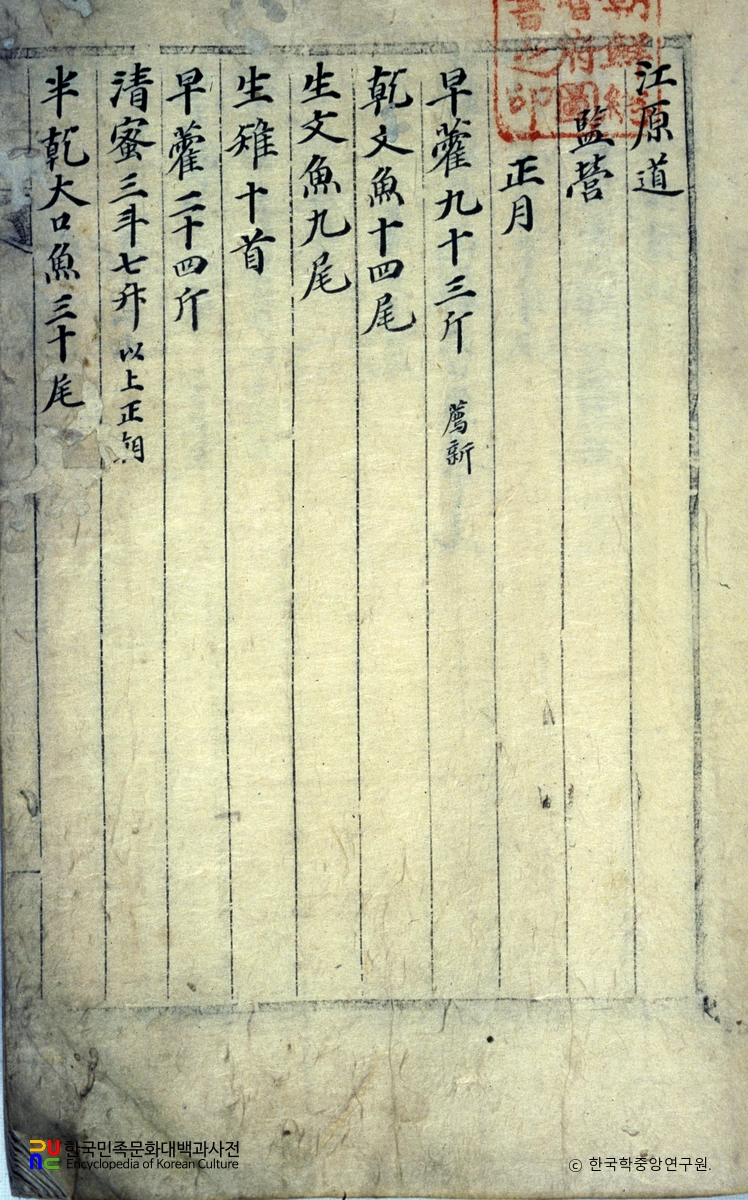 江原道
監營
正月
早藿九十三斤 薦新
乾文魚十四尾
生文魚九尾
生雉十首
早藿二十四斤
清蜜三斗七升 以上正朝
半乾大口魚三十尾
한국민족문화대백과사전
Encyclopedia of Korean Culture
© 한국학중앙연구원.